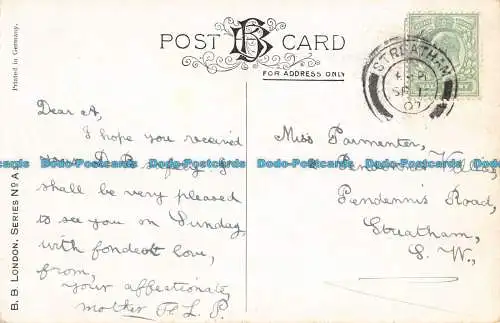 POST CARD
BB
FOR ADDRESS ONLY
Printed in Germany.
B. B. LONDON, SERIES No A
STREATHAM
SP 1
07
Dear A,
I hope you received
your safely. I
shall be very pleased
to see you on Sunday
with fondest love,
from,
your affectionate
mother H. L. P.
Miss Parmenter,
Pendennis Villas,
Pendennis Road,
Streatham,
S. W.,
Dodo-Postcards Dodo-Postcards Dodo-Postcards Dodo-Postcards Dodo-Postcards